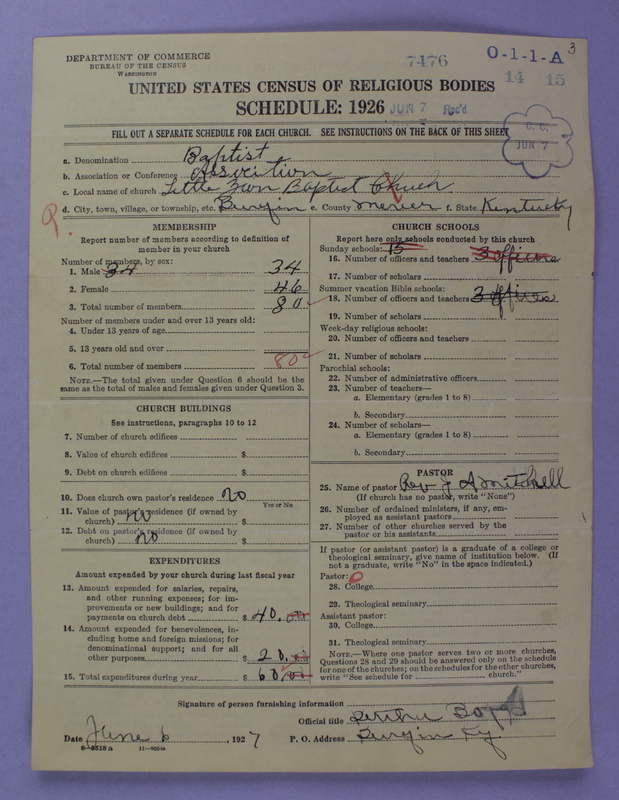 DEPARTMENT OF COMMERCE
BUREAU OF THE CENSUS
WASHINGTON
7476
O-1-1-A
3
14 15
UNITED STATES CENSUS OF RELIGIOUS BODIES
SCHEDULE: 1926
JUN 7 Rec'd
FILL OUT A SEPARATE SCHEDULE FOR EACH CHURCH. SEE INSTRUCTIONS ON THE BACK OF THIS SHEET
C. C.
JUN 7
a. Denomination Baptist
b. Association or Conference Association
c. Local name of church Little Zion Baptist Church
d. City, town, village, or township, etc. Burgin e. County Mercer f. State Kentucky
MEMBERSHIP
Report number of members according to definition of member in your church
Number of members, by sex:
1. Male 34 34
2. Female 46
3. Total number of members 80
Number of members under and over 13 years old:
4. Under 13 years of age
5. 13 years old and over
6. Total number of members 80
NOTE.—The total given under Question 6 should be the
same as the total of males and females given under Question 3.
CHURCH BUILDINGS
See instructions, paragraphs 10 to 12
7. Number of church edifices
8. Value of church edifices $
9. Debt on church edifices $
10. Does church own pastor's residence no
Yes or No
11. Value of pastor's residence (if owned by
church) no $
12. Debt on pastor's residence (if owned by
church) no $
EXPENDITURES
Amount expended by your church during last fiscal year
13. Amount expended for salaries, repairs,
and other running expenses; for im-
provements or new buildings; and for
payments on church debt $ 40.00
14. Amount expended for benevolences, in-
cluding home and foreign missions; for
denominational support; and for all
other purposes $ 20.00
15. Total expenditures during year $ 60.00
CHURCH SCHOOLS
Report here only schools conducted by this church
Sunday schools: 15
16. Number of officers and teachers 3 officers
17. Number of scholars
Summer vacation Bible schools:
18. Number of officers and teachers 3 offices
19. Number of scholars
Week-day religious schools:
20. Number of officers and teachers
21. Number of scholars
Parochial schools:
22. Number of administrative officers
23. Number of teachers—
a. Elementary (grades 1 to 8)
b. Secondary
24. Number of scholars—
a. Elementary (grades 1 to 8)
b. Secondary
PASTOR
25. Name of pastor Rev J A Mitchell
(If church has no pastor, write "None")
26. Number of ordained ministers, if any, em-
ployed as assistant pastors
27. Number of other churches served by the
pastor or his assistants
If pastor (or assistant pastor) is a graduate of a college or
theological seminary, give name of institution below. (If
not a graduate, write "No" in the space indicated.)
Pastor:
28. College
29. Theological seminary
Assistant pastor:
30. College
31. Theological seminary
NOTE.—Where one pastor serves two or more churches,
Questions 28 and 29 should be answered only on the schedule
for one of the churches; on the schedules for the other churches,
write "See schedule for church."
Signature of person furnishing information
Official title
Date June 6, 1927 P. O. Address Burgin Ky
8-5518a 11-9054a